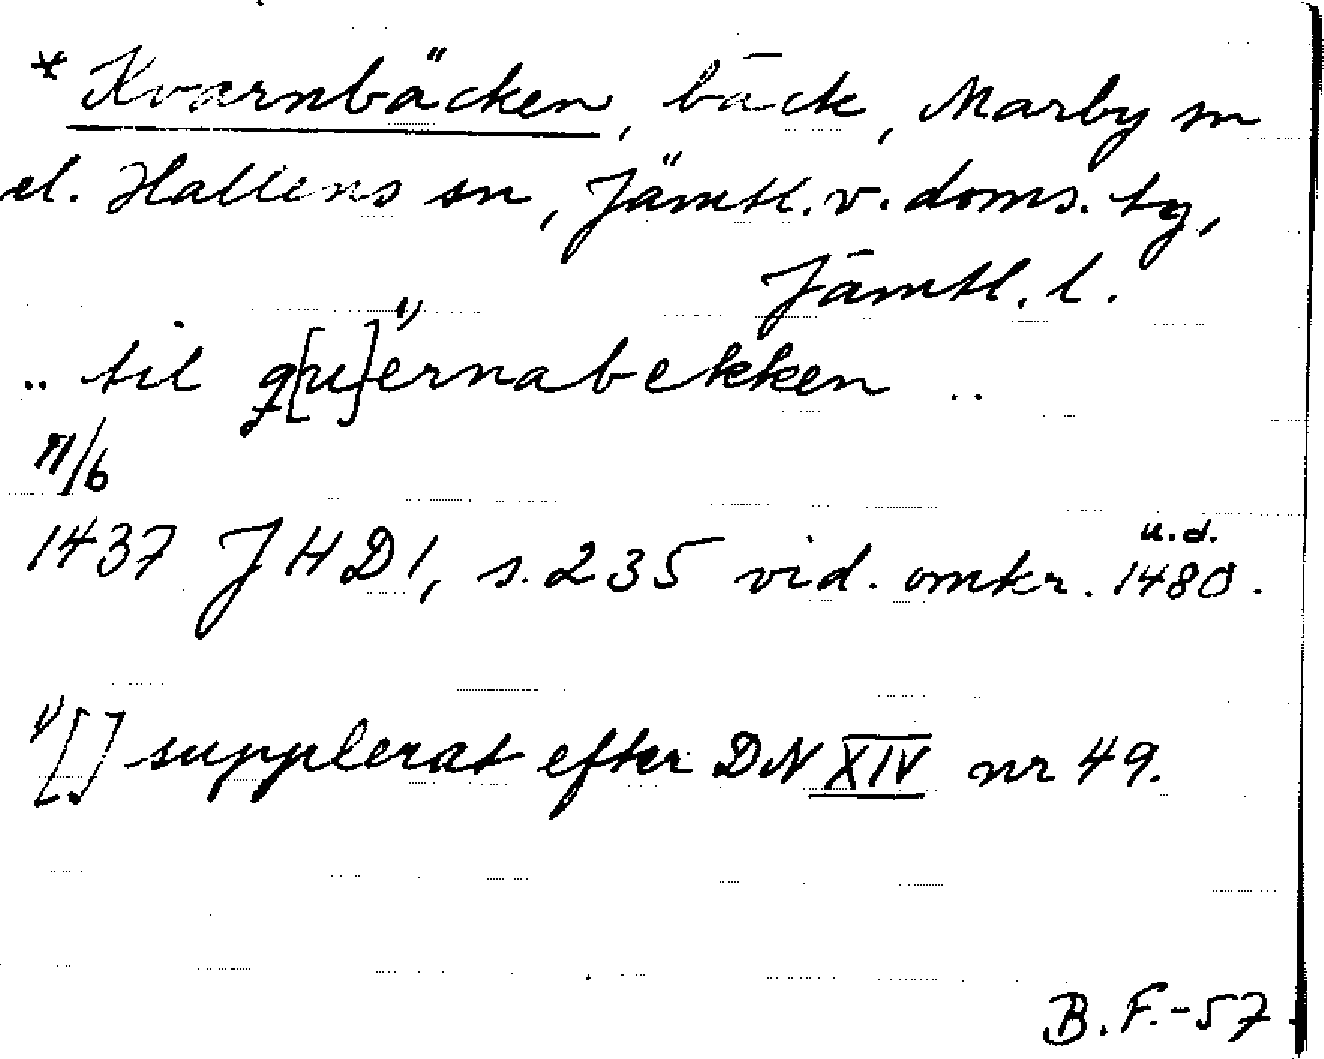 * Kvarnbäcken, bäck, Marby sn
el. Hallens sn, Jämtl. v. doms. tg,
Jämtl. l.
.. til q[u]¹⁾ernabekken ..
11/6
1437 JHD 1, s. 235 vid. omkr. 1480 u.d.
¹⁾[] supplerat efter DN XIV nr 49.
B.F.-57